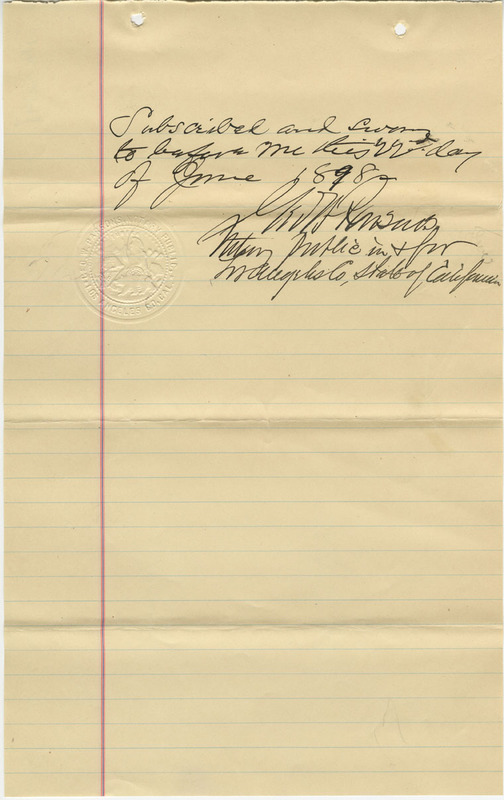 Subscribed and sworn
to before me this 22nd day
of June 1898
Geo. W. Parsons
Notary Public in & for
Los Angeles Co, State of California